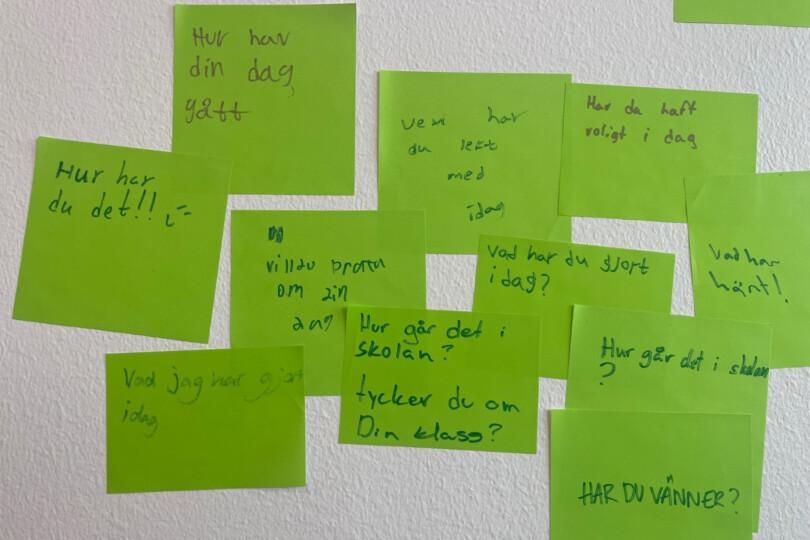 Hur har
din dag
gått
vem har
du lekt
med
idag
Har du haft
roligt i dag
Hur har
du det!!
villdu prata
om din
dag
Vad har du gjort
i dag?
Vad har
hänt!
Vad jag har gjort
idag
Hur går det i
skolan?
tycker du om
Din klass?
Hur går det i skolan
?
HAR DU VÄNNER?